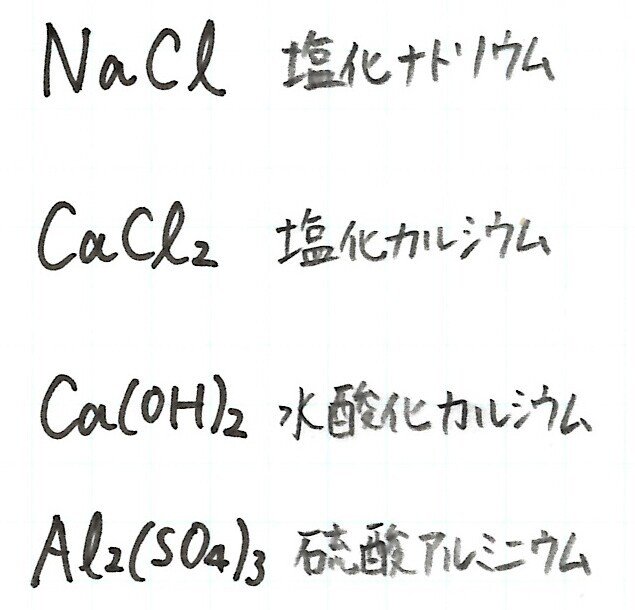 NaCl 塩化ナトリウム
CaCl₂ 塩化カルシウム
Ca(OH)₂ 水酸化カルシウム
Al₂(SO₄)₃ 硫酸アルミニウム